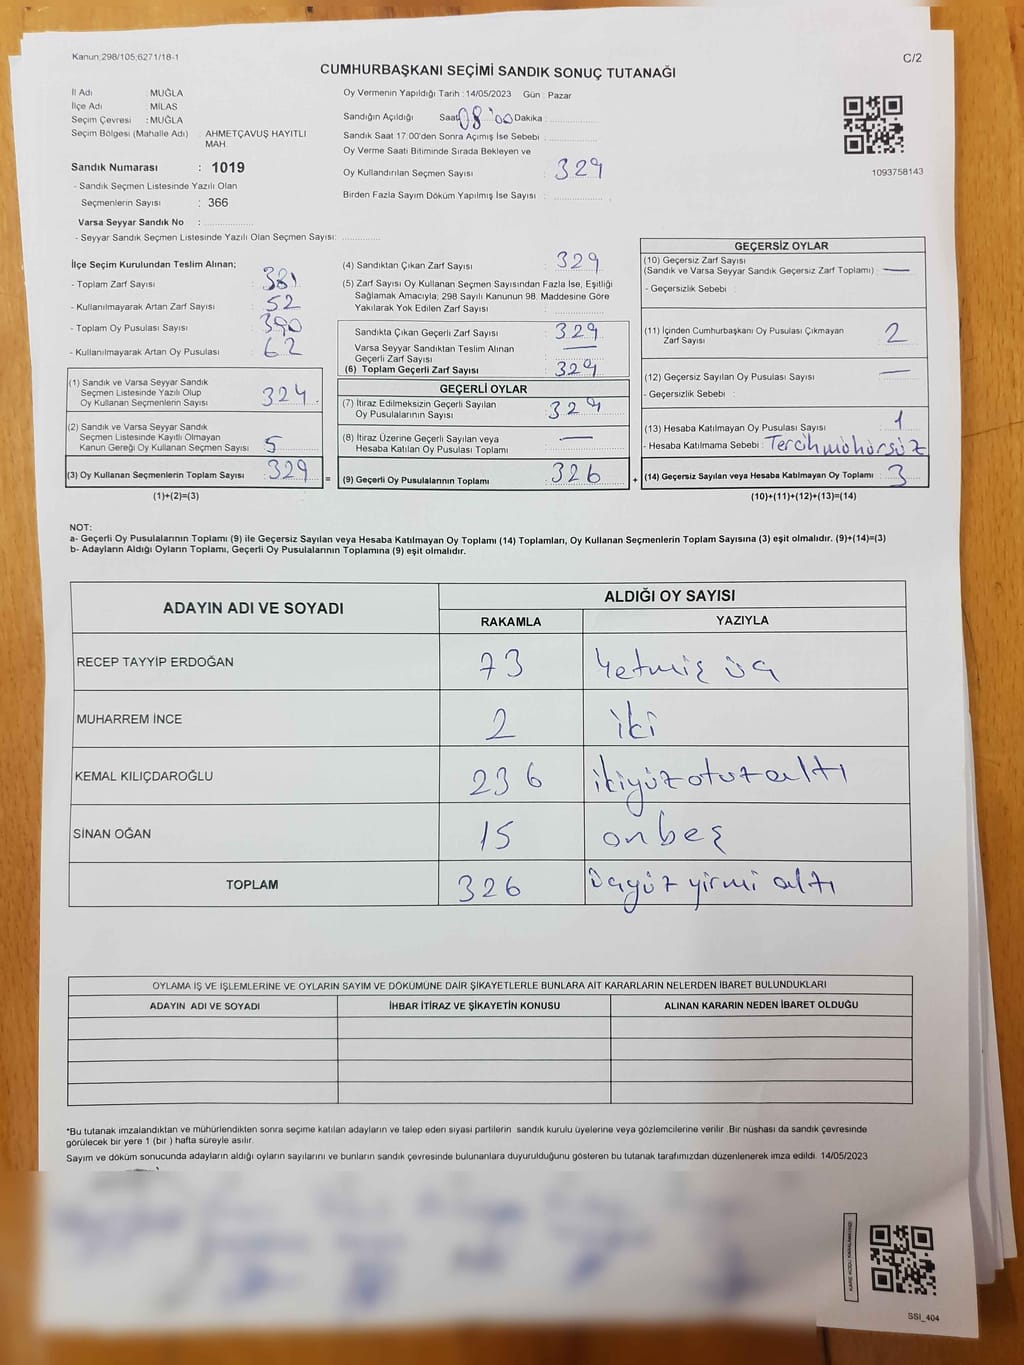 Kanun;298/105;6271/18-1
C/2
CUMHURBAŞKANI SEÇİMİ SANDIK SONUÇ TUTANAĞI
İl Adı : MUĞLA
İlçe Adı : MİLAS
Seçim Çevresi : MUĞLA
Seçim Bölgesi (Mahalle Adı) : AHMETÇAVUŞ HAYITLI MAH.
Sandık Numarası : 1019
- Sandık Seçmen Listesinde Yazılı Olan
Seçmenlerin Sayısı : 366
Varsa Seyyar Sandık No : ..................
- Seyyar Sandık Seçmen Listesinde Yazılı Olan Seçmen Sayısı: ..............
Oy Vermenin Yapıldığı Tarih : 14/05/2023 Gün : Pazar
Sandığın Açıldığı Saat 08 : 00 Dakika :
Sandık Saat 17:00'den Sonra Açımış İse Sebebi :
Oy Verme Saati Bitiminde Sırada Bekleyen ve
Oy Kullandırılan Seçmen Sayısı : 329
Birden Fazla Sayım Döküm Yapılmış İse Sayısı :
1093758143
İlçe Seçim Kurulundan Teslim Alınan;
- Toplam Zarf Sayısı : 381
- Kullanılmayarak Artan Zarf Sayısı : 52
- Toplam Oy Pusulası Sayısı : 390
- Kullanılmayarak Artan Oy Pusulası : 62
(1) Sandık ve Varsa Seyyar Sandık
Seçmen Listesinde Yazılı Olup
Oy Kullanan Seçmenlerin Sayısı : 324
(2) Sandık ve Varsa Seyyar Sandık
Seçmen Listesinde Kayıtlı Olmayan
Kanun Gereği Oy Kullanan Seçmen Sayısı : 5
(3) Oy Kullanan Seçmenlerin Toplam Sayısı : 329
(1)+(2)=(3)
(4) Sandıktan Çıkan Zarf Sayısı : 329
(5) Zarf Sayısı Oy Kullanan Seçmen Sayısından Fazla İse, Eşitliği
Sağlamak Amacıyla; 298 Sayılı Kanunun 98. Maddesine Göre
Yakılarak Yok Edilen Zarf Sayısı :
Sandıkta Çıkan Geçerli Zarf Sayısı : 329
Varsa Seyyar Sandıktan Teslim Alınan
Geçerli Zarf Sayısı : —
(6) Toplam Geçerli Zarf Sayısı : 329
GEÇERLİ OYLAR
(7) İtiraz Edilmeksizin Geçerli Sayılan
Oy Pusulalarının Sayısı : 329
(8) İtiraz Üzerine Geçerli Sayılan veya
Hesaba Katılan Oy Pusulası Toplamı : —
= (9) Geçerli Oy Pusulalarının Toplamı : 326
GEÇERSİZ OYLAR
(10) Geçersiz Zarf Sayısı
(Sandık ve Varsa Seyyar Sandık Geçersiz Zarf Toplamı) : —
- Geçersizlik Sebebi :
(11) İçinden Cumhurbaşkanı Oy Pusulası Çıkmayan
Zarf Sayısı : 2
(12) Geçersiz Sayılan Oy Pusulası Sayısı : —
- Geçersizlik Sebebi :
(13) Hesaba Katılmayan Oy Pusulası Sayısı : 1
- Hesaba Katılmama Sebebi : Tercihmühürsüz
+ (14) Geçersiz Sayılan veya Hesaba Katılmayan Oy Toplamı : 3
(10)+(11)+(12)+(13)=(14)
NOT:
a- Geçerli Oy Pusulalarının Toplamı (9) ile Geçersiz Sayılan veya Hesaba Katılmayan Oy Toplamı (14) Toplamları, Oy Kullanan Seçmenlerin Toplam Sayısına (3) eşit olmalıdır. (9)+(14)=(3)
b- Adayların Aldığı Oyların Toplamı, Geçerli Oy Pusulalarının Toplamına (9) eşit olmalıdır.
ADAYIN ADI VE SOYADI
ALDIĞI OY SAYISI
RAKAMLA YAZIYLA
RECEP TAYYİP ERDOĞAN 73 Yetmiş üç
MUHARREM İNCE 2 iki
KEMAL KILIÇDAROĞLU 236 ikiyüzotuzaltı
SİNAN OĞAN 15 onbeş
TOPLAM 326 üçyüz yirmi altı
OYLAMA İŞ VE İŞLEMLERİNE VE OYLARIN SAYIM VE DÖKÜMÜNE DAİR ŞİKAYETLERLE BUNLARA AİT KARARLARIN NELERDEN İBARET BULUNDUKLARI
ADAYIN ADI VE SOYADI İHBAR İTİRAZ VE ŞİKAYETİN KONUSU ALINAN KARARIN NEDEN İBARET OLDUĞU
*Bu tutanak imzalandıktan ve mühürlendikten sonra seçime katılan adayların ve talep eden siyasi partilerin sandık kurulu üyelerine veya gözlemcilerine verilir .Bir nüshası da sandık çevresinde
görülecek bir yere 1 (bir ) hafta süreyle asılır.
Sayım ve döküm sonucunda adayların aldığı oyların sayılarını ve bunların sandık çevresinde bulunanlara duyurulduğunu gösteren bu tutanak tarafımızdan düzenlenerek imza edildi. 14/05/2023
SSİ_404